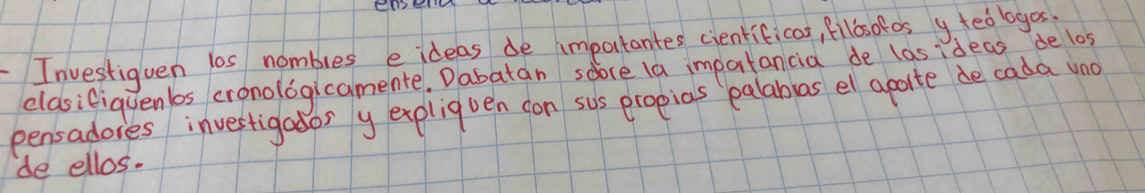 - Investiguen los nombres e ideas de importantes científicas, filósofos y teólogos.
clasifiquenlos cronológicamente. Dabatan sobre la importancia de las ideas de los
pensadores investigados y expliquen con sus propias palabras el aporte de cada uno
de ellos.